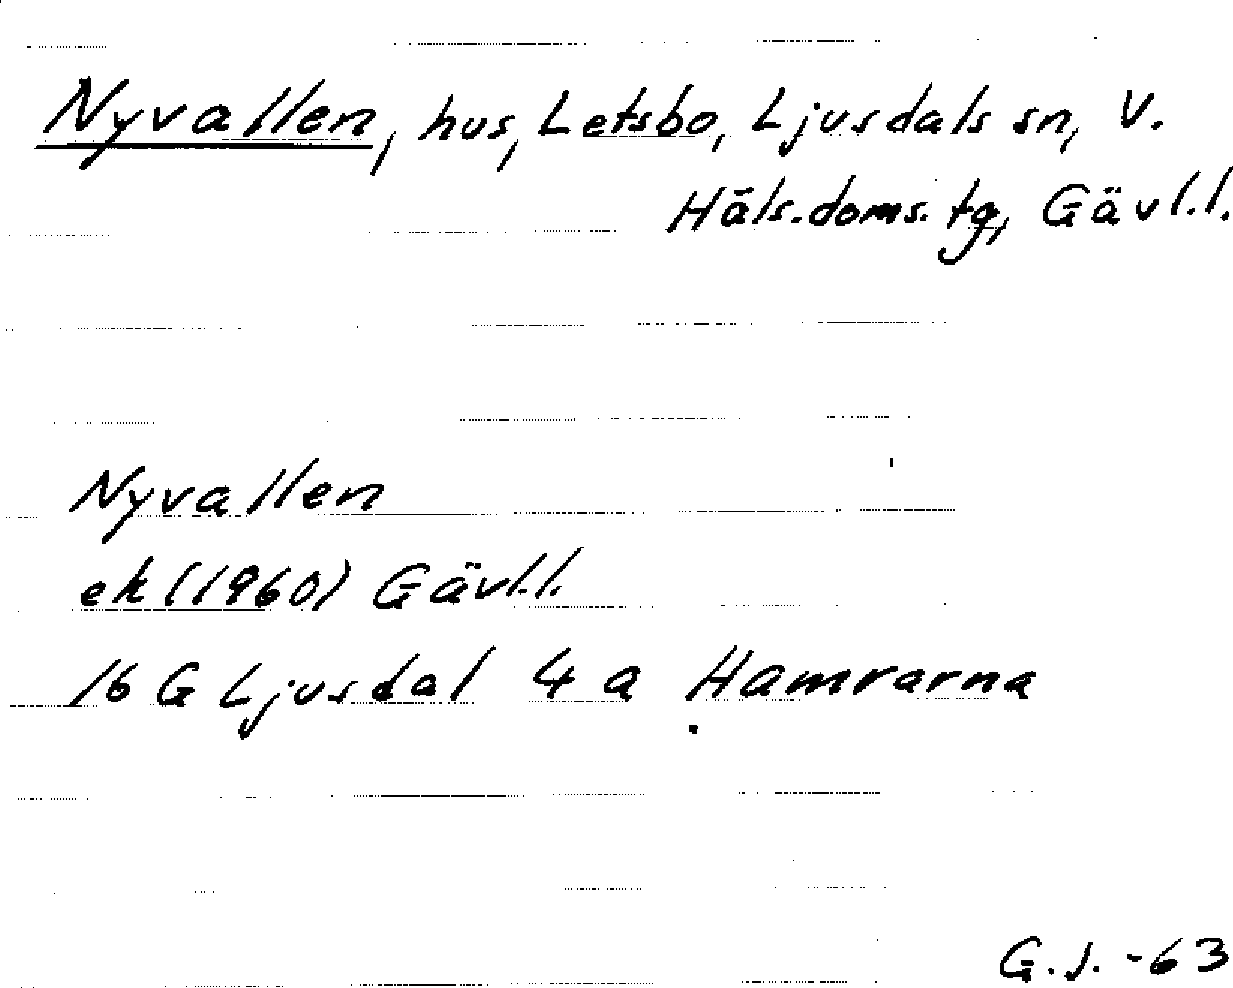 Nyvallen, hus, Letsbo, Ljusdals sn, V.
Häls. doms. tg, Gävl.l.
Nyvallen
ek (1960) Gävl.l.
16 G Ljusdal 4 a Hamrarna
G.J. -63